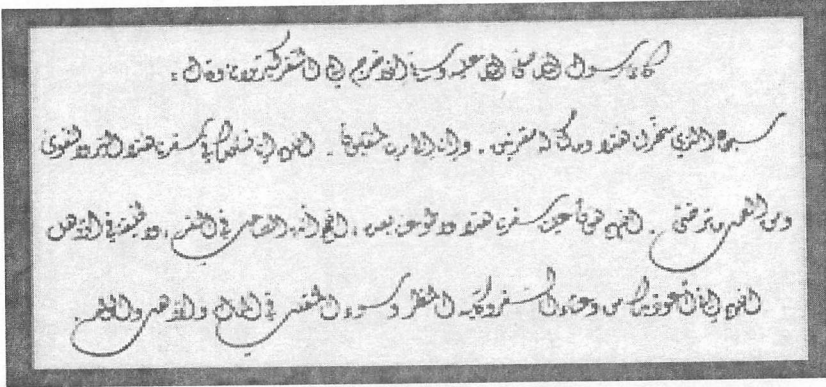 كان رسول الله صلى الله عليه وسلم إذا خرج إلى السفر كبر ثلاثا وقال :
سبحان الذي سخر لنا هذا وما كنا له مقرنين . وإنا إلى ربنا لمنقلبون . اللهم إنا نسألك في سفرنا هذا البر والتقوى
ومن العمل ما ترضى . اللهم هون علينا سفرنا هذا واطو عنا بعده ، اللهم أنت الصاحب في السفر ، والخليفة في الأهل
اللهم إني أعوذ بك من وعثاء السفر وكآبة المنظر وسوء المنقلب في المال والأهل والولد .